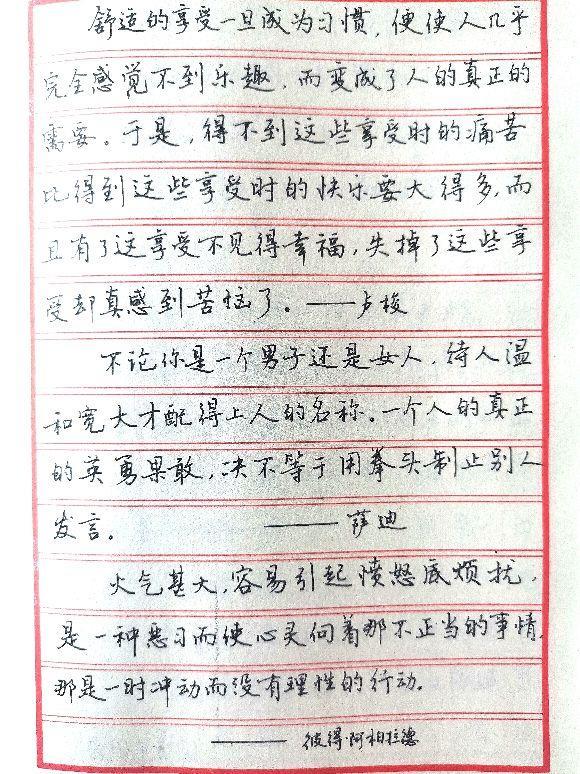 舒适的享受一旦成为习惯，便使人几乎
完全感觉不到乐趣，而变成了人的真正的
需要。于是，得不到这些享受时的痛苦
比得到这些享受时的快乐要大得多，而
且有了这享受不见得幸福，失掉了这些享
受却真感到苦恼了。——卢梭
不论你是一个男子还是女人，待人温
和宽大才配得上人的名称。一个人的真正
的英勇果敢，决不等于用拳头制止别人
发言。——萨迪
火气甚大，容易引起愤怒底烦扰，
是一种恶习而使心灵向着那不正当的事情，
那是一时冲动而没有理性的行动。
——彼得·阿柏拉德